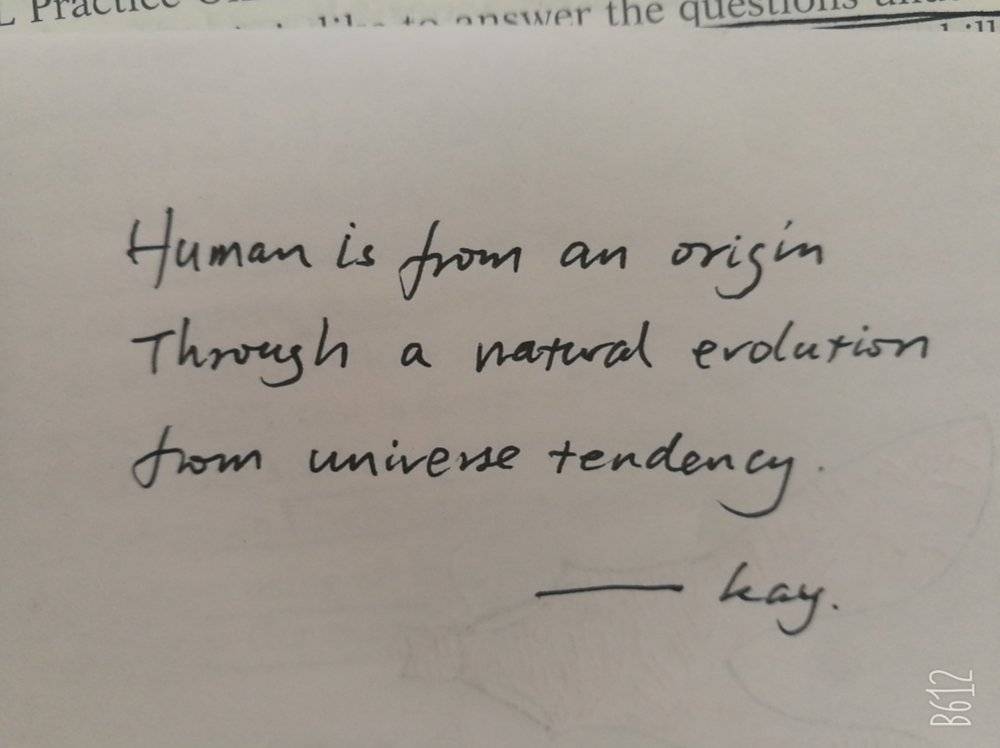 Practice
to answer the questions
Human is from an origin
Through a natural evolution
from universe tendency.
— kay.
B612